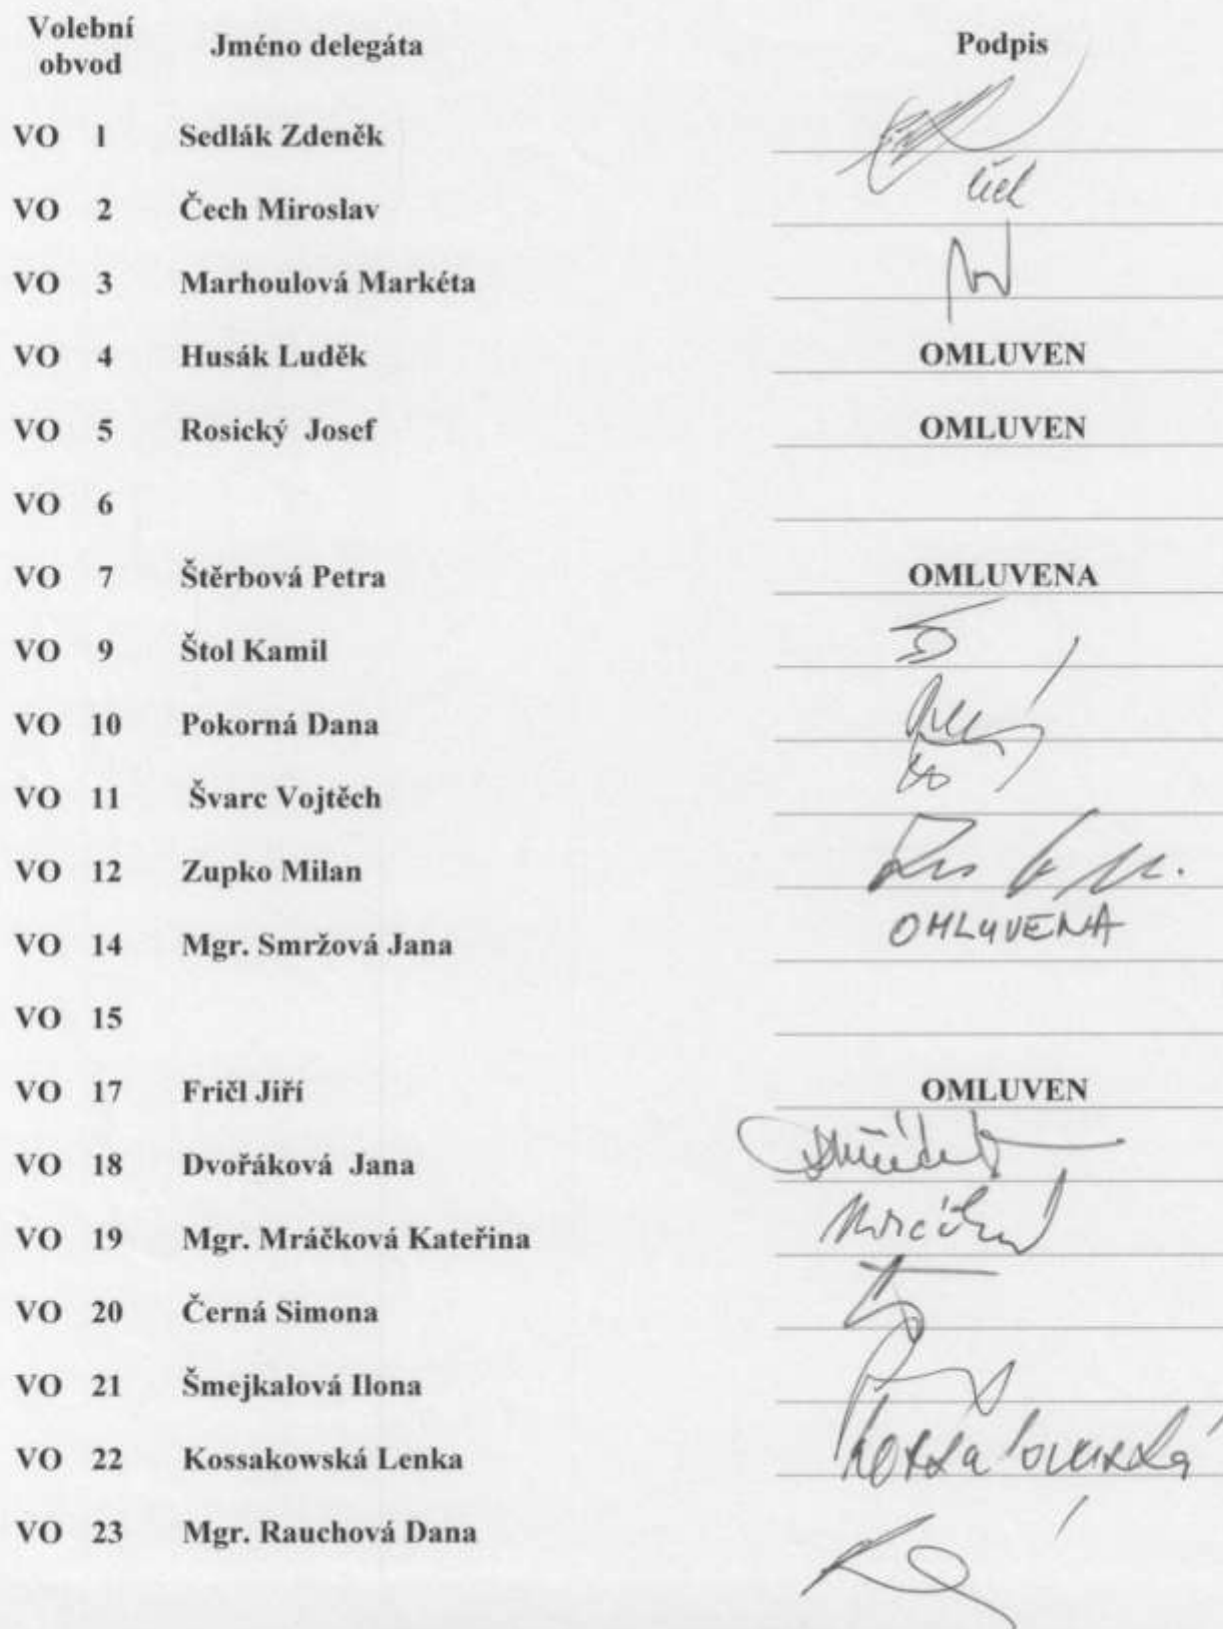 Volební obvod Jméno delegáta Podpis
VO 1 Sedlák Zdeněk
VO 2 Čech Miroslav
VO 3 Marhoulová Markéta
VO 4 Husák Luděk OMLUVEN
VO 5 Rosický Josef OMLUVEN
VO 6
VO 7 Štěrbová Petra OMLUVENA
VO 9 Štol Kamil
VO 10 Pokorná Dana
VO 11 Švarc Vojtěch
VO 12 Zupko Milan
VO 14 Mgr. Smržová Jana OMLUVENA
VO 15
VO 17 Fričl Jiří OMLUVEN
VO 18 Dvořáková Jana
VO 19 Mgr. Mráčková Kateřina
VO 20 Černá Simona
VO 21 Šmejkalová Ilona
VO 22 Kossakowská Lenka
VO 23 Mgr. Rauchová Dana